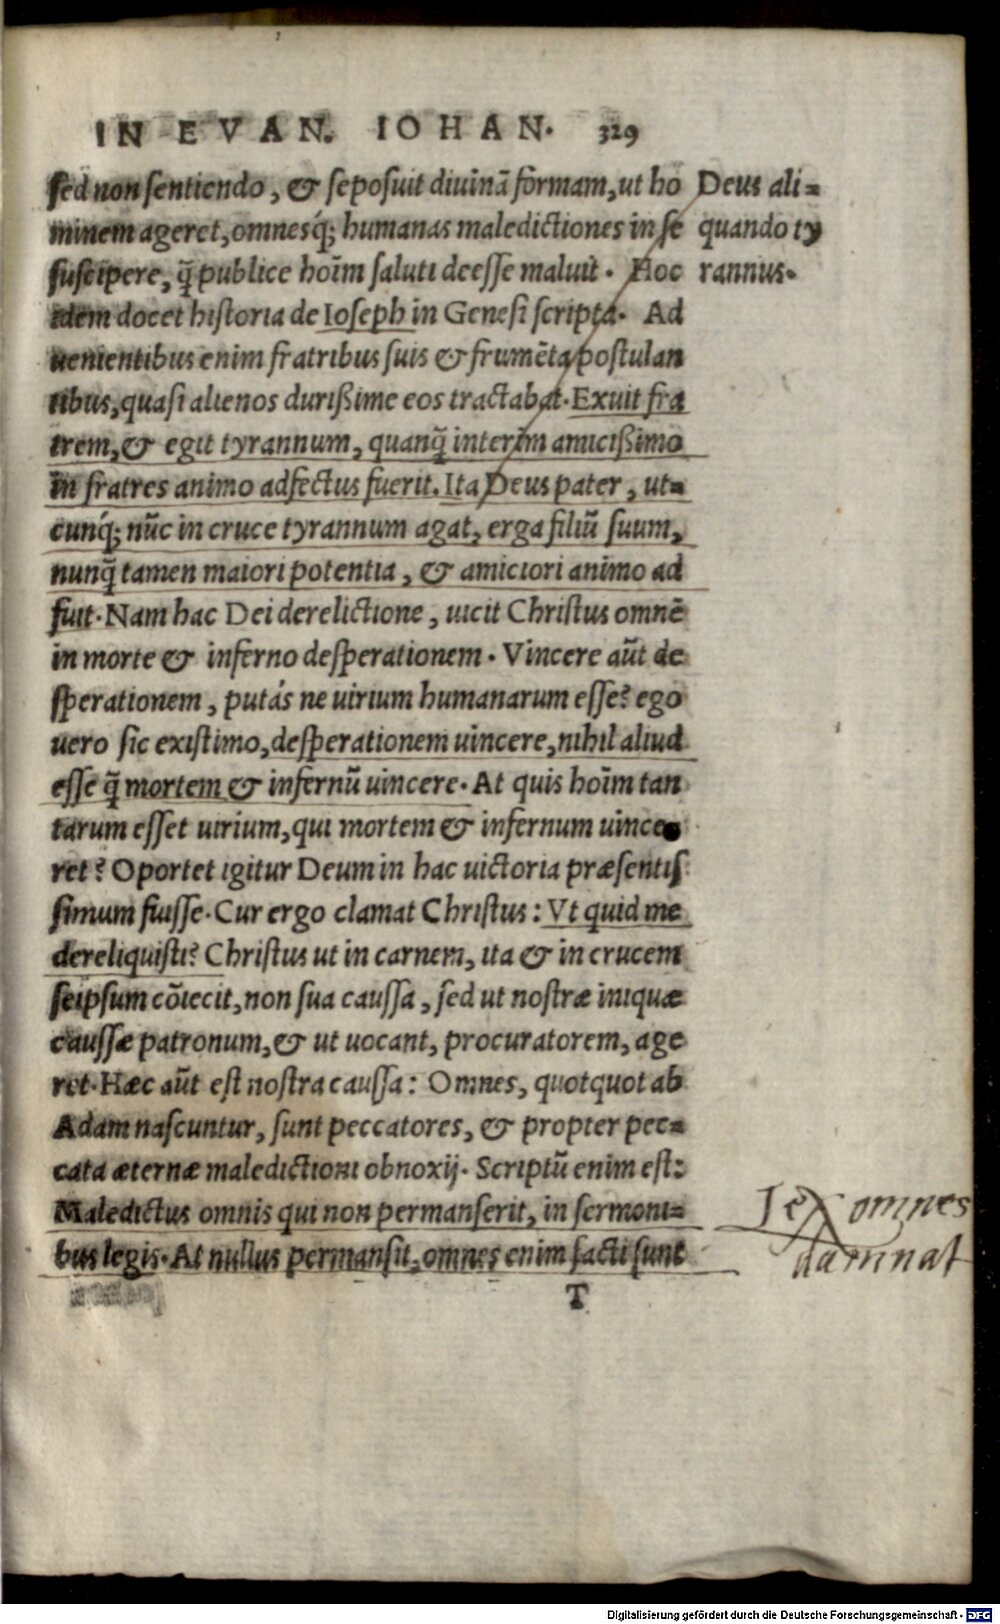 IN EVAN. IOHAN. 329
sed non sentiendo, & seposuit diuinā formam, ut ho
minem ageret, omnesq́; humanas maledictiones in se
suscipere, q̄ publice hoīm saluti deesse maluit. Hoc
idem docet historia de Ioseph in Genesi scripta. Ad
uenientibus enim fratribus suis & frumēta postulan
tibus, quasi alienos durißime eos tractabat. Exuit fra
trem, & egit tyrannum, quanq̄ interim amicißimo
in fratres animo adfectus fuerit. Ita Deus pater, ut=
cunq́; nūc in cruce tyrannum agat, erga filiū suum,
nunq̄ tamen maiori potentia, & amiciori animo ad
fuit. Nam hac Dei derelictione, uicit Christus omnē
in morte & inferno desperationem. Vincere aūt de
sperationem, putás ne uirium humanarum esse? ego
uero sic existimo, desperationem uincere, nihil aliud
esse q̄ mortem & infernū uincere. At quis hoīm tan
tarum esset uirium, qui mortem & infernum uince
ret? Oportet igitur Deum in hac uictoria præsentis
simum fuisse. Cur ergo clamat Christus: Vt quid me
dereliquisti? Christus ut in carnem, ita & in crucem
seipsum cōiecit, non sua caussa, sed ut nostræ iniquæ
caussæ patronum, & ut uocant, procuratorem, age
ret. Hæc aūt est nostra caussa: Omnes, quotquot ab
Adam nascuntur, sunt peccatores, & propter pec=
cata æternæ maledictioni obnoxij. Scriptū enim est:
Maledictus omnis qui non permanserit, in sermoni=
bus legis. At nullus permansit, omnes enim facti sunt
T
Deus ali=
quando ty
rannus.
Lex omnes
damnat
Digitalisierung gefördert durch die Deutsche Forschungsgemeinschaft - DFG